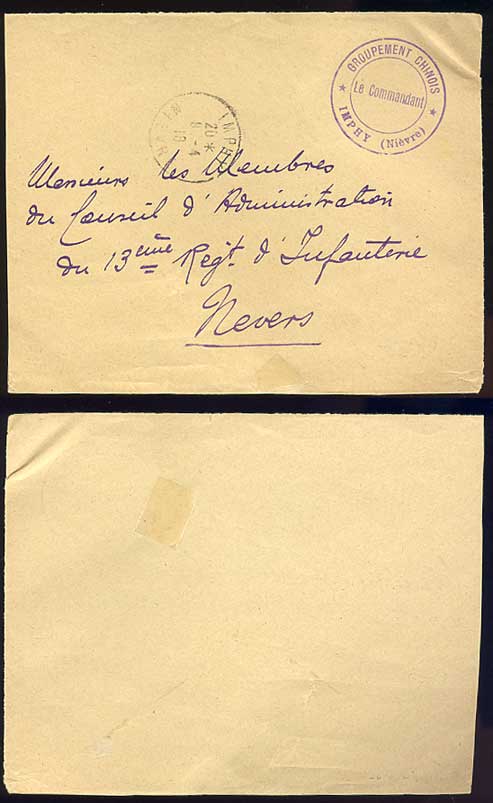 GROUPEMENT CHINOIS
Le Commandant
IMPHY (Nièvre)
IMPHY
20 *
8 - 4
NIEVRE
Messieurs les Membres
du Conseil d'Administration
du 13ème Regt. d'Infanterie
Nevers